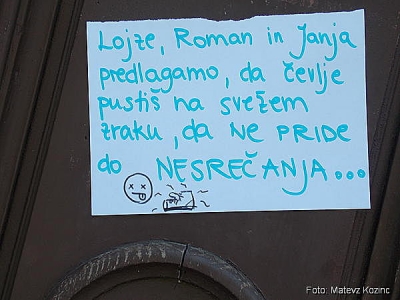 Lojze, Roman in Janja
predlagamo, da čevlje
pustiš na svežem
zraku, da NE PRIDE
do NESREČANJA...
Foto: Matevz Kozinc